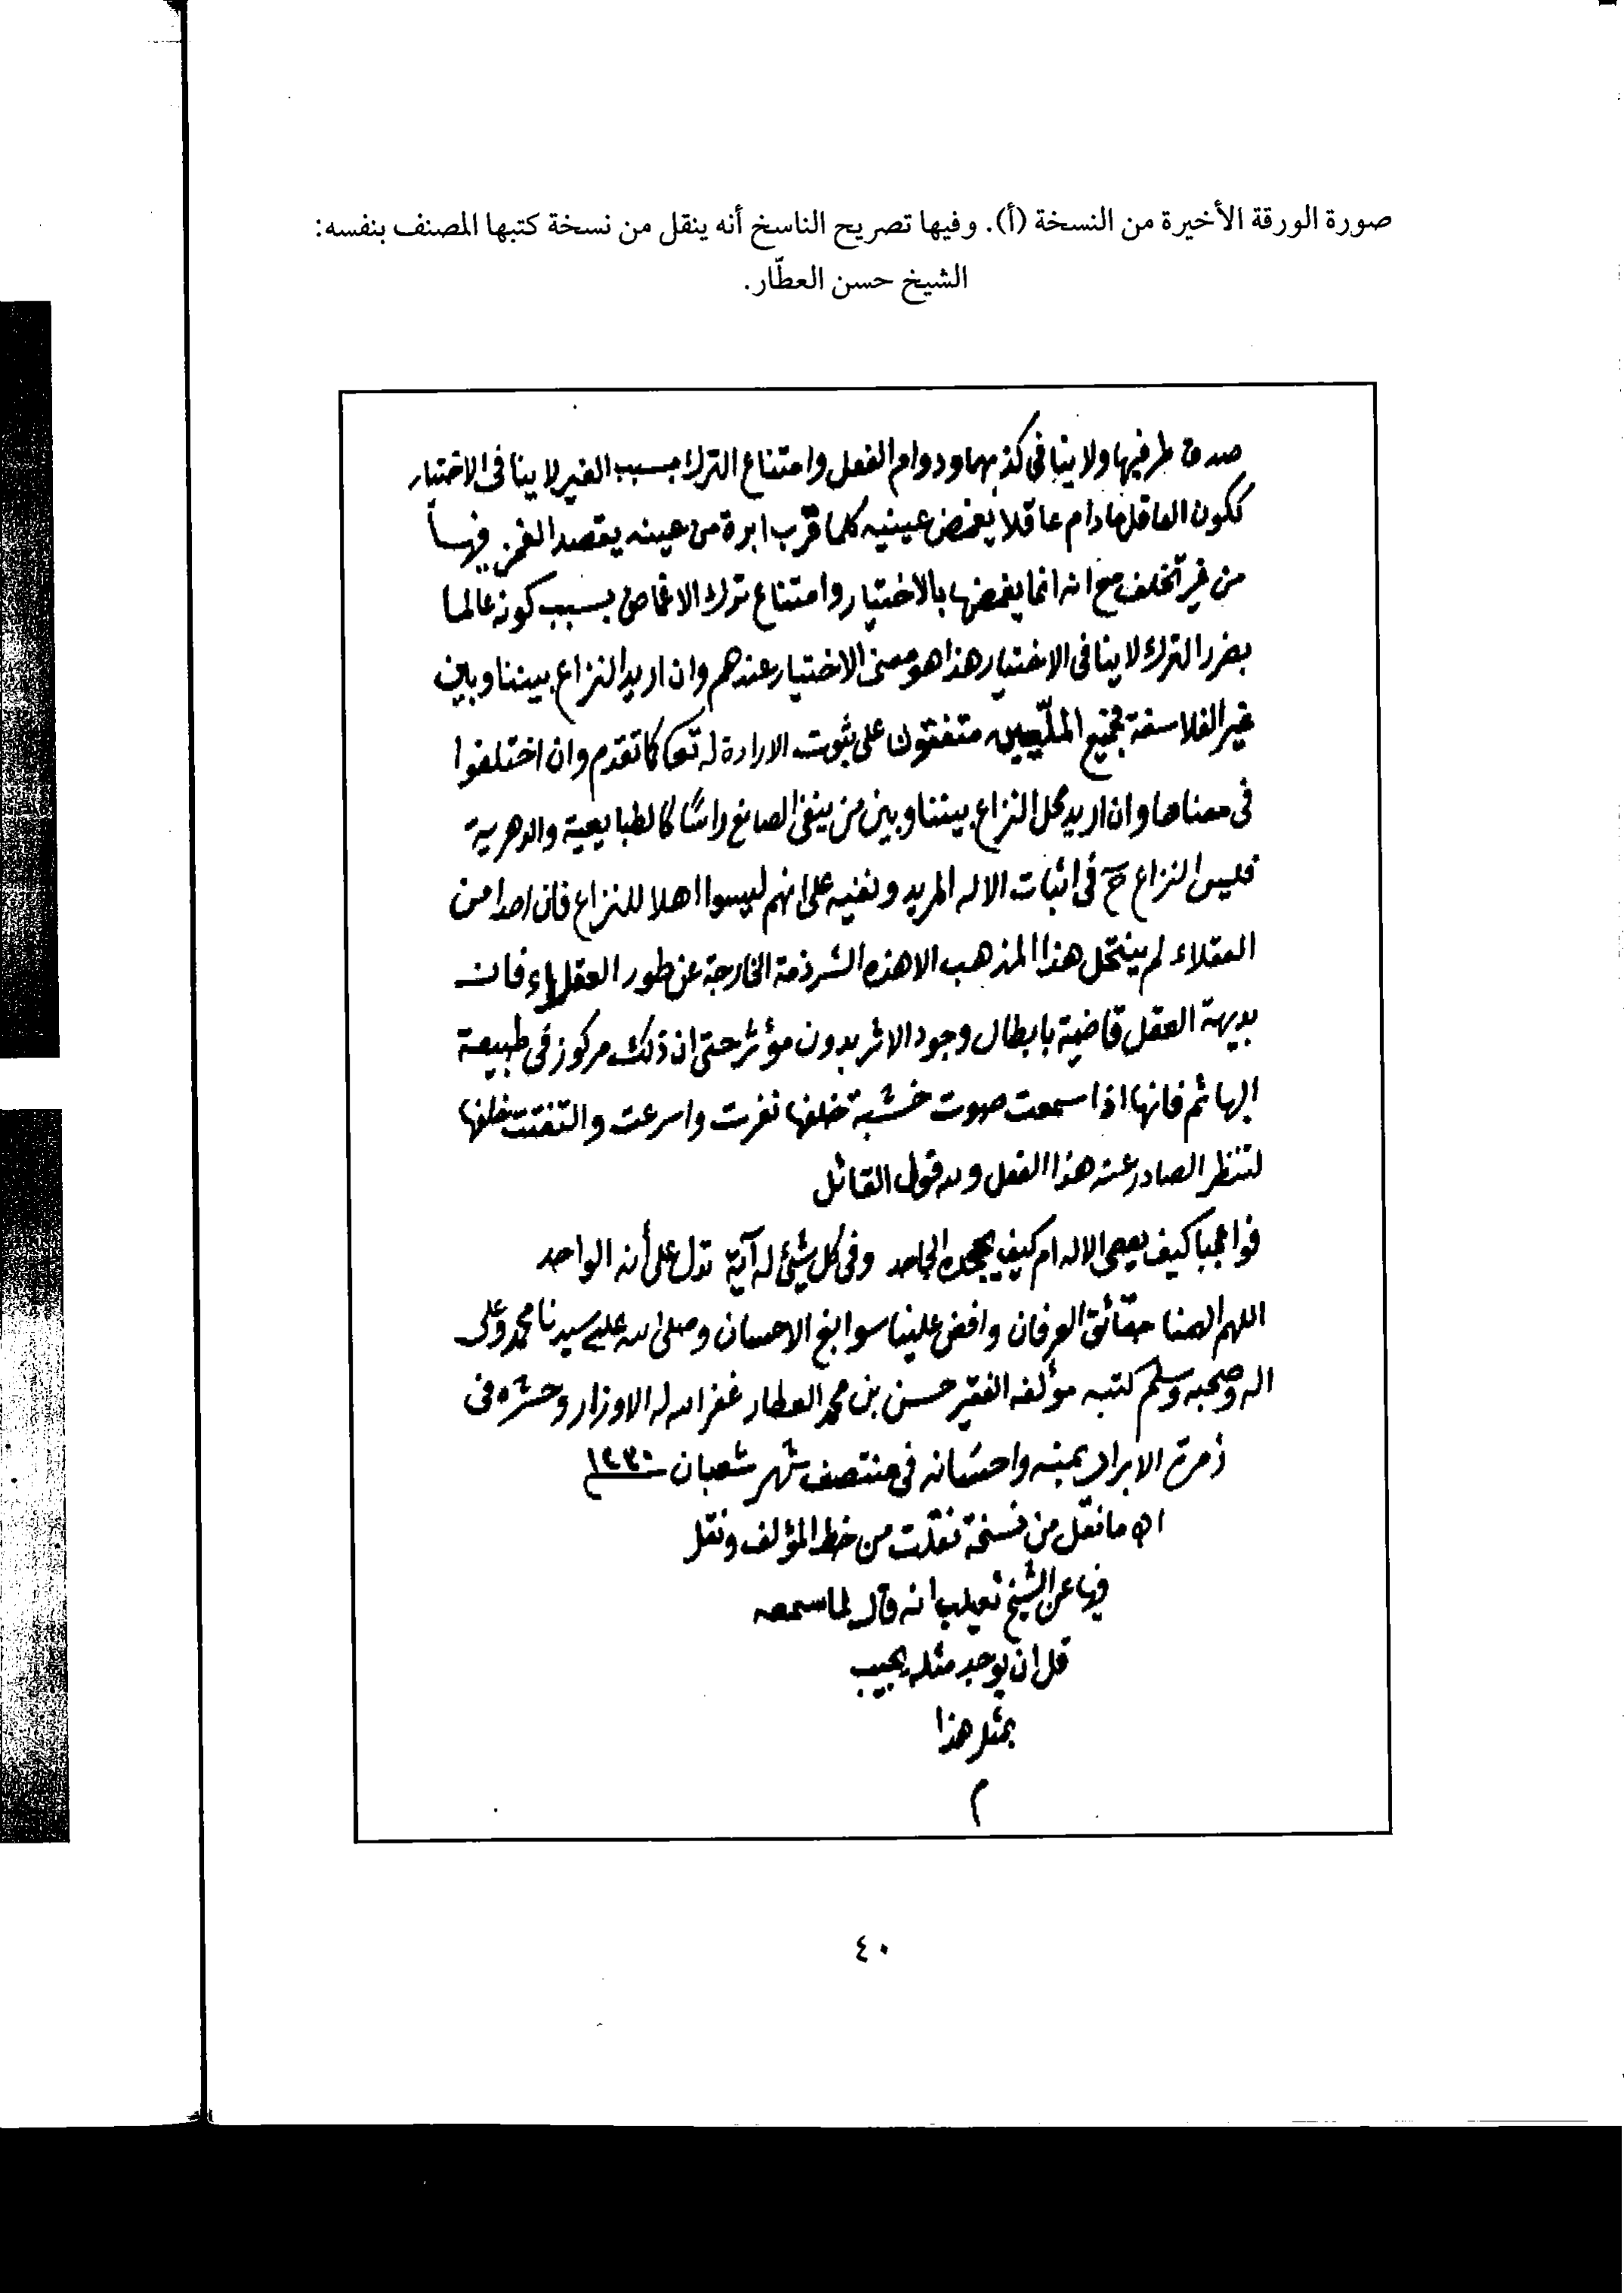 صورة الورقة الأخيرة من النسخة (أ). وفيها تصريح الناسخ أنه ينقل من نسخة كتبها المصنف بنفسه:
الشيخ حسن العطّار.
صدق طرفيها ولا ينافى كذبهما ودوام الفعل وامتناع الترك بسبب الغير لا ينافى الاختيار
ككون العاقل مادام عاقلا يغمض عينيه كلما قرب ابرة من عينه يقصد الغمز فيها
من غير تخلف مع انه انما يغمضها بالاختيار وامتناع ترك الاغماض بسبب كونه عالما
بضرر الترك لا ينافى الاختيار هذا هو معنى الاختيار عندهم وان اريد النزاع بيننا وبين
غير الفلاسفة فجميع المليين متفقون على ثبوت الارادة له تعا كما تقدم وان اختلفوا
فى معناها وان اريد محل النزاع بيننا وبين من ينفى الصانع راسًا كالطبايعية والدهرية
فليس النزاع ح فى اثبات الاله المريد ونفيه على انهم ليسوا اهلا للنزاع فان احدا من
العقلاء لم ينتحل هذا المذهب الا هذه الشرذمة الخارجة عن طور العقلاء فان
بديهة العقل قاضية بابطال وجود الاثر بدون مؤثر حتى ان ذلك مركوز فى طبيعة
البهائم فانها اذا سمعت صوت خشبة خلفها نفرت واسرعت والتفتت خلفها
لتنظر الصادر عنه هذا الفعل ولله قول القائل
فوا عجبا كيف يعصى الاله ام كيف يجحده الجاحد وفى كل شيئ له آية تدل على أنه الواحد
اللهم الهمنا حقائق العرفان وافض علينا سوابغ الاحسان وصلى الله على سيدنا محمد وعلى
اله وصحبه وسلم كتبه مؤلفه الفقير حسن بن محمد العطار غفر الله له الاوزار وحشره فى
زمرة الابرار بمنه واحسانه فى منتصف شهر شعبان ١٢٣٠
اه ما نقل من نسخة نقلت من خط المؤلف ونقل
فيها عن الشيخ ثعيلب انه قال لما سمعه
قل ان يوجد مثله يجيب
بمثل هذا
م
٤٠